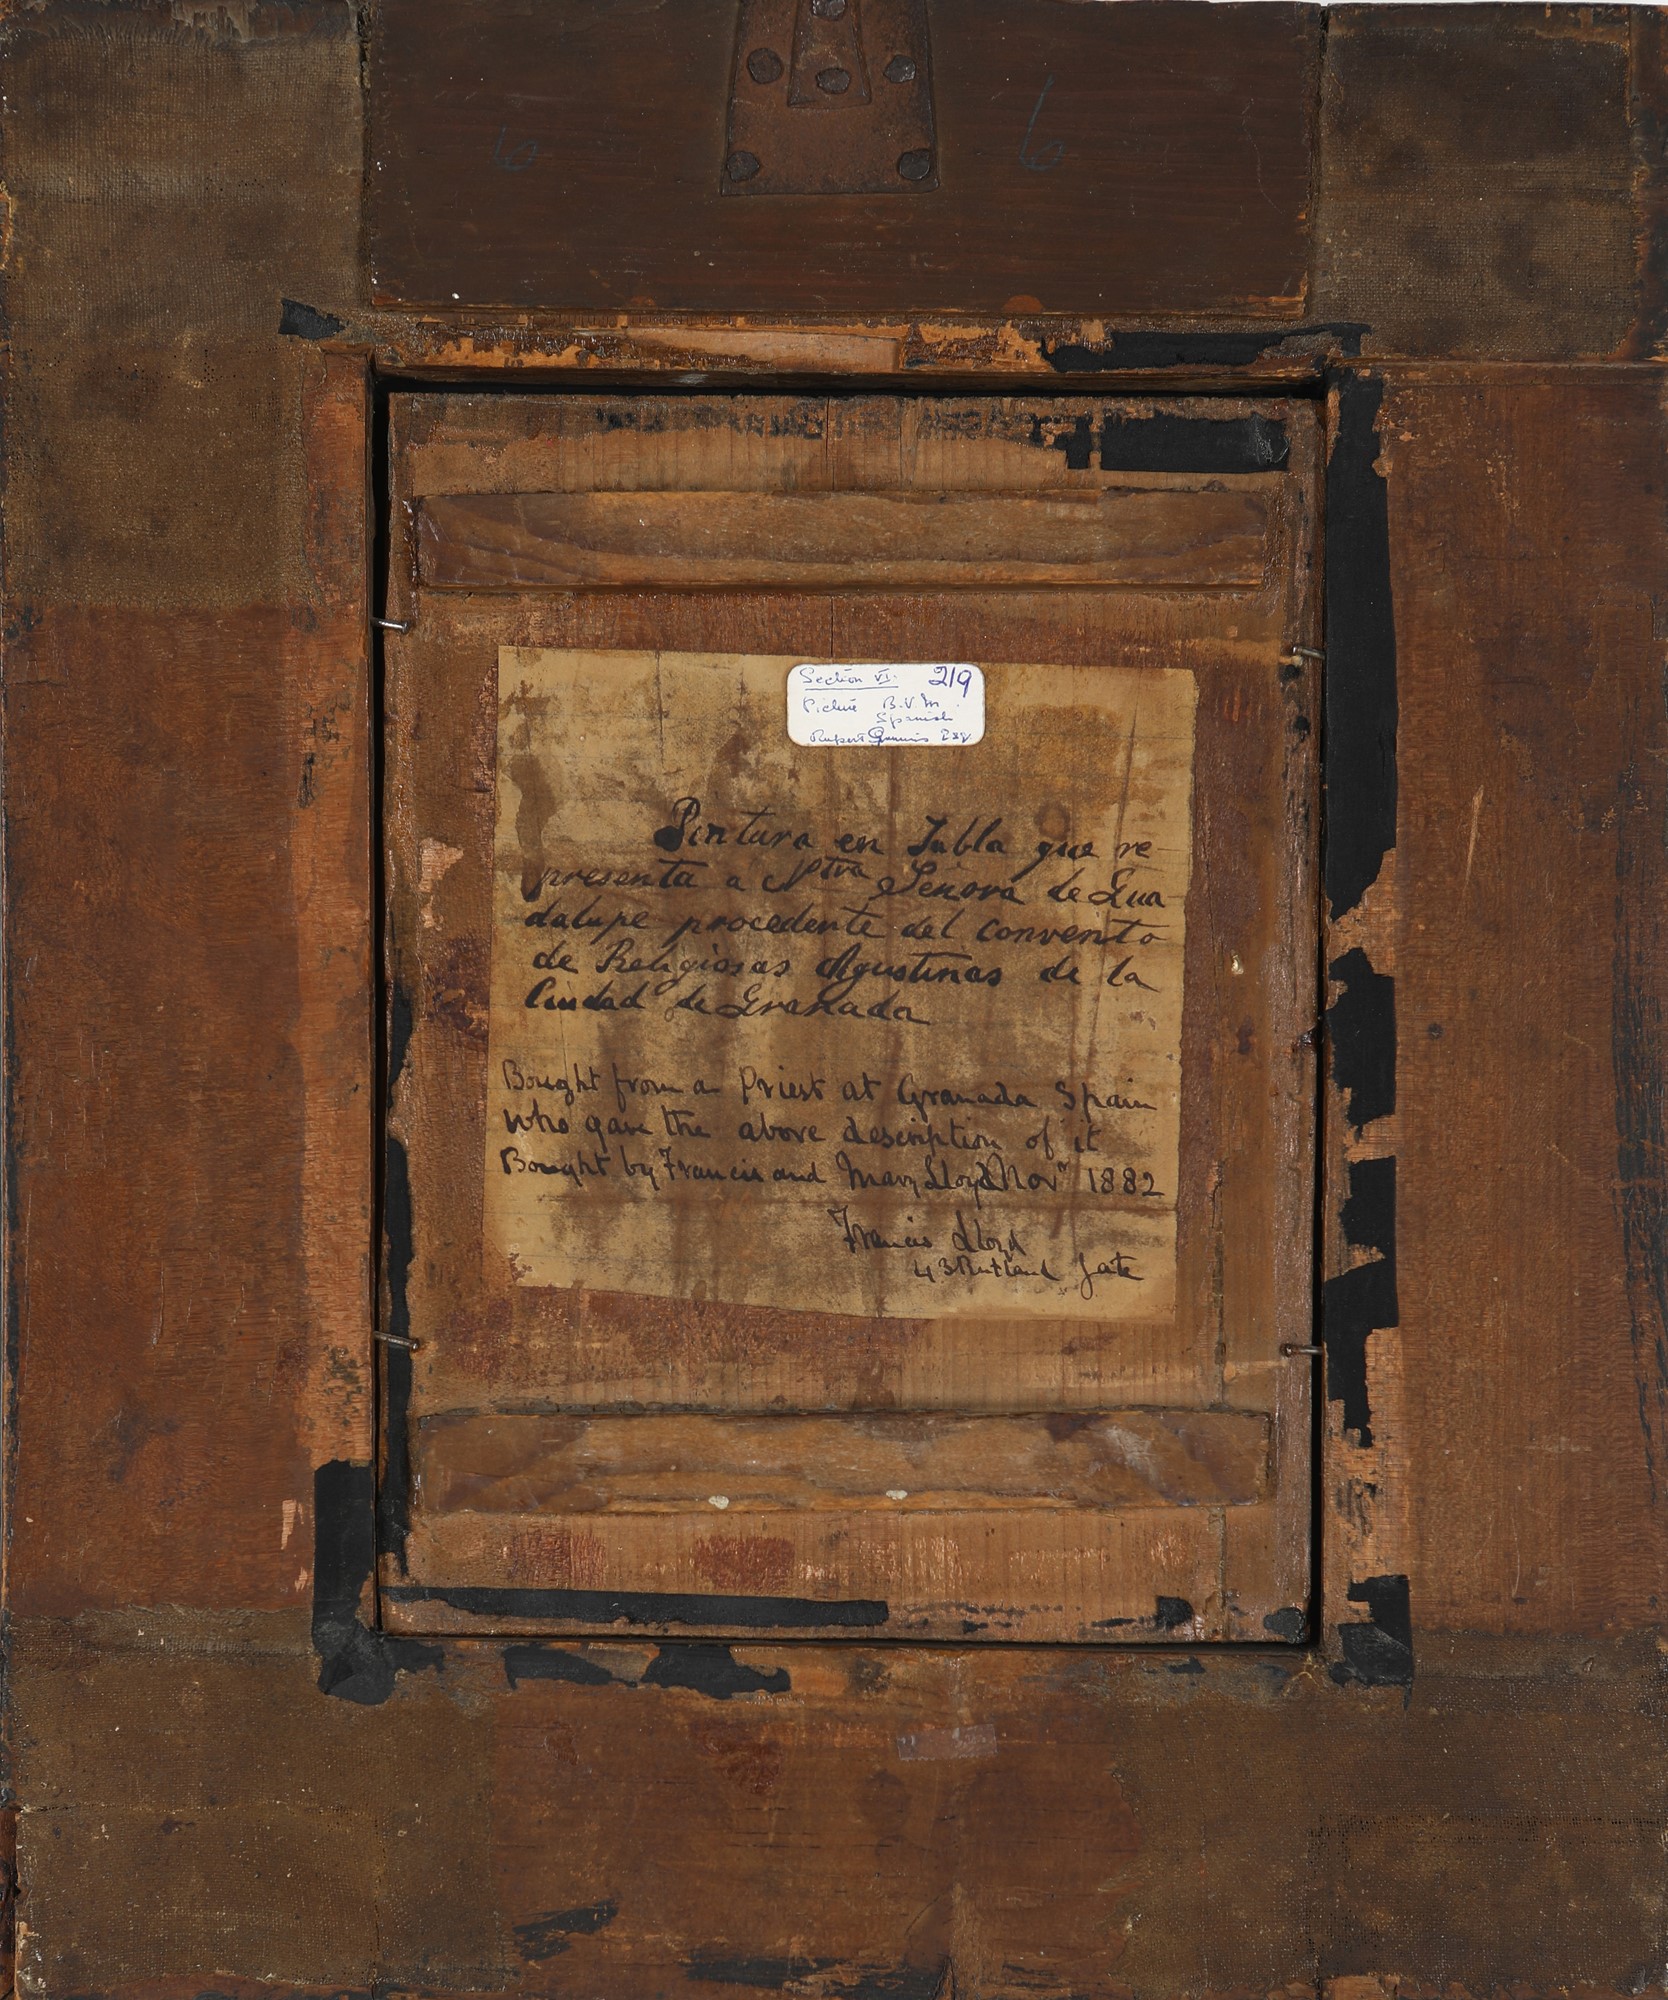 6 6
Section VI. 219
Picture B.V.M.
Spanish
Rupert Gunnis Esq
Pintura en Tabla que re-
presenta a Ntra Señora de Gua-
dalupe procedente del convento
de Religiosas Agustinas de la
Ciudad de Granada
Bought from a Priest at Granada Spain
who gave the above description of it
Bought by Francis and Mary Lloyd Novr 1882
Francis Lloyd
43 Rutland Gate